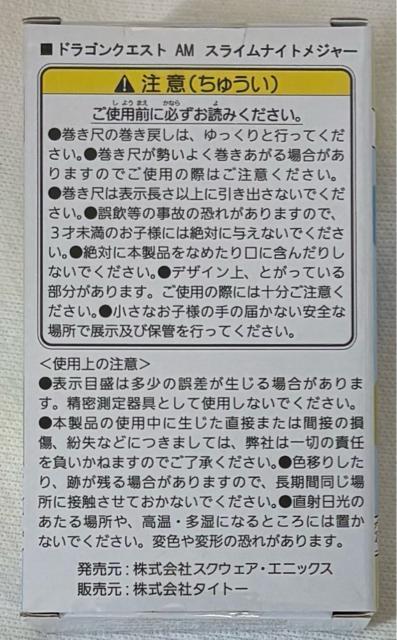 ■ドラゴンクエスト AM スライムナイトメジャー
注意(ちゅうい)
しようまえ かなら よ
ご使用前に必ずお読みください。
●巻き尺の巻き戻しは、ゆっくりと行ってくだ
さい。●巻き尺が勢いよく巻きあがる場合があ
りますのでご使用の際はご注意ください。
●巻き尺は表示長さ以上に引き出さないでくだ
さい。●誤飲等の事故の恐れがありますので、
3才未満のお子様には絶対に与えないでくださ
い。●絶対に本製品をなめたり口に含んだりし
ないでください。●デザイン上、とがっている
部分があります。ご使用の際には十分ご注意く
ださい。●小さなお子様の手の届かない安全な
場所で展示及び保管を行ってください。
<使用上の注意>
●表示目盛は多少の誤差が生じる場合がありま
す。精密測定器具として使用しないでください。
●本製品の使用中に生じた直接または間接の損
傷、紛失などにつきましては、弊社は一切の責任
を負いかねますのでご了承ください。●色移りした
り、跡が残る場合がありますので、長期間同じ場
所に接触させておかないでください。●直射日光の
あたる場所や、高温・多湿になるところには置か
ないでください。変色や変形の恐れがあります。
発売元:株式会社スクウェア・エニックス
販売元:株式会社タイトー